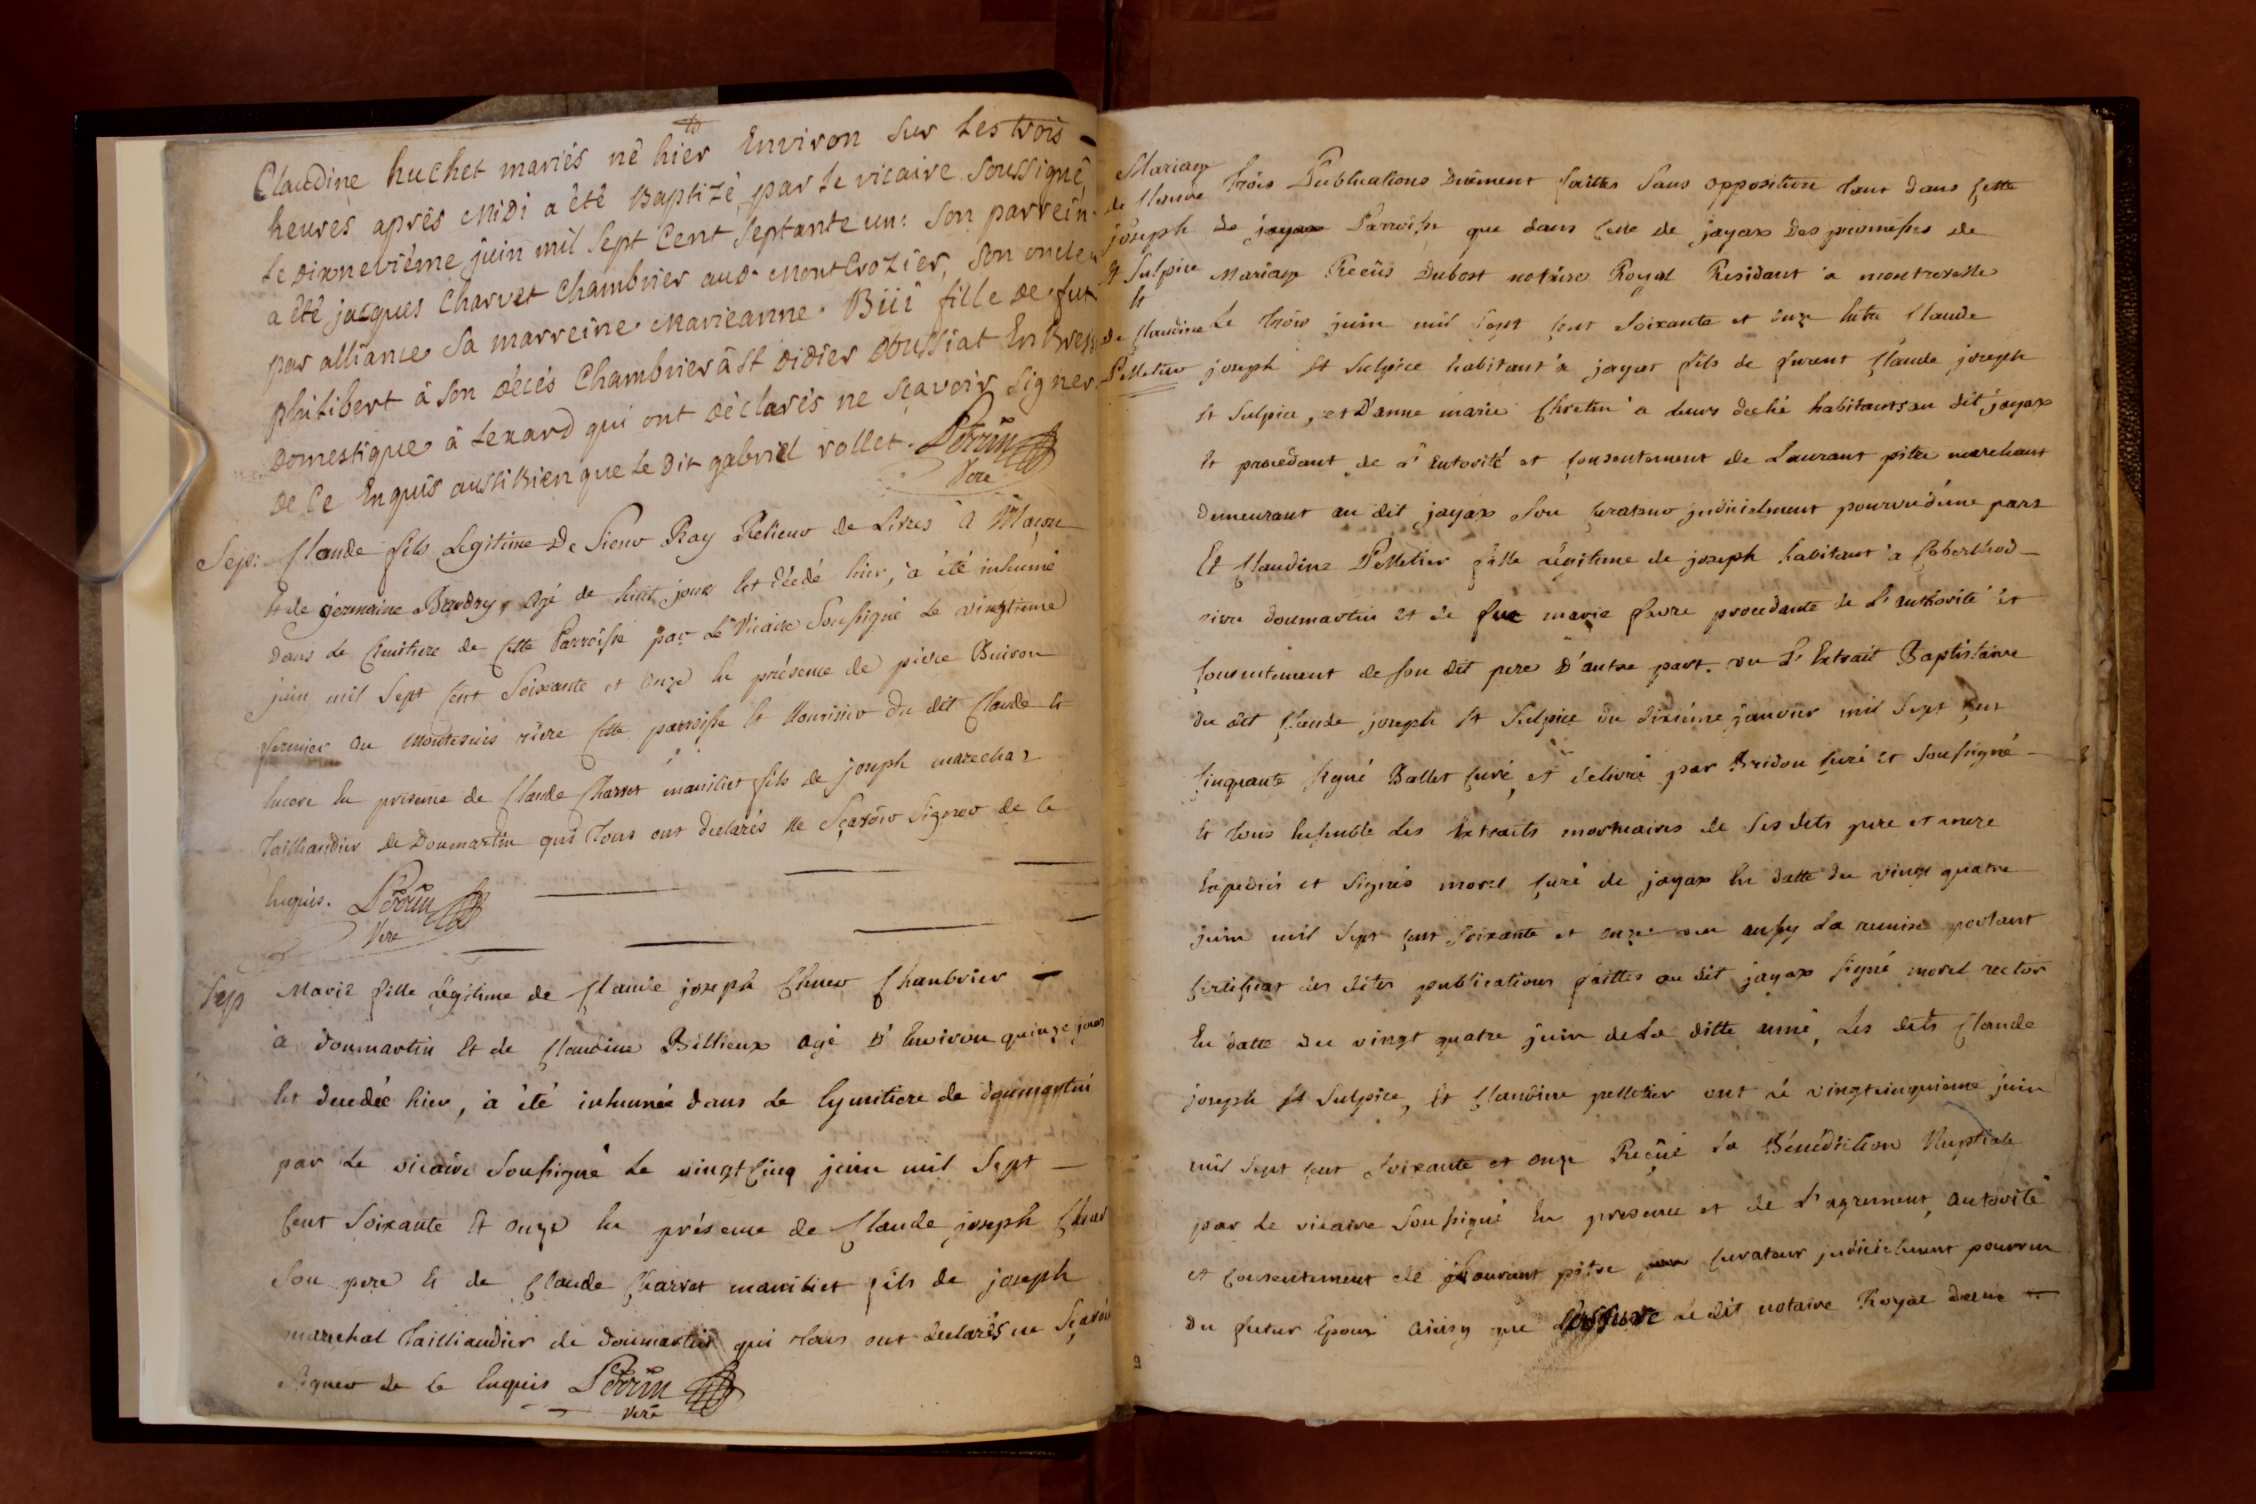 Claudine huchet mariés né hier Environ sur Les trois
heures après midi a èté Baptizé par Le vicaire soussigné
Le dixnevième juin mil sept Cent septante un: son parrein
a èté jacques Charvet Chambrier aud. Montcrozier, son oncle
par alliance sa marreine Marieanne Biii fille de fut
philibert à son décés Chambrier à st didier doussiat En Bress
domestique à Lexard qui ont déclarés ne sçavoir signer
de Ce Enquis aussi Bien que Le dit gabriel rollet. Perrin
Vere
Sep: Claude fils Legitime De Pierre Ray Relieur de Livres à Maçon
Et de germaine Baudry, agé de huit jours Et décédé hier, a été inhumé
dans Le Cimitiere de Cette Parroisse par Le Vicaire Soussigné Le vingtieme
juin mil Sept Cent Soixante et Onze En présence de piere Buiron
fermier du Montesuis riere Cette parroisse Et Nourissier du dit Claude Et
Encore En presence de Claude Charvet manillier fils de joseph marechal
Tailliandier de Doumartin qui Tous ont declarés Ne Sçavoir Signer de Ce
Enquis. Perrin
Vere
Sep Marie fille Légitime de Claude joseph Chanbrier
à doumartin Et de Claudine Billieux agé d'Environ quinze jours
Et decedée hier, a été inhumée dans Le Cymitiere de doumartin
par Le vicaire Soussigné Le vingt Cinq juin mil Sept
Cent Soixante Et Onze En présence de Claude joseph
Son pere Et de Claude Charvet manillier fils de joseph
marechal Tailliandier de doumartin qui Tous ont declarés ne Sçavoir
Signer de Ce Enquis Perrin
Vere
Mariage
de Claude
joseph
St Sulpice
Et
de Claudine
Pelletier
Trois Publications Duëment faittes Sans opposition tant dans Cette
de jayax Parroisse que dans Celle de jayax Des promesses de
Mariage Recûs Dubost notaire Royal Residant a montrevelle
Le Trois juin mil Sept Cent Soixante et Onze Entre Claude
joseph St Sulpice habitant à jayax fils de furent Claude joseph
St Sulpice, et D'anne marie Chretin a Leurs decés habitants au dit jayax
Et procedant de L'autorité et Consentement de Laurant pitre marchant
demeurant au dit jayax Son Curateur judiciëlement pourvu d'une part
Et Claudine Pelletier fille Légitime de joseph habitant a Coberthod
riere doumartin Et de fut marie favre procedante de L'authorité Et
Consentement de Son dit pere D'autre part. vu L'Extrait Baptistaire
du dit Claude joseph St Sulpice du dixiéme janvier mil Sept Cent
Cinquante Signé Ballet Curé, et delivré par Bridon Curé Et Soussigné
Et Tous Ensemble Les Extraits mortuaires de Ses dits pere et mere
Expediés et Signés morel Curé de jayax En datte du vingt quatre
juin mil Sept Cent Soixante et onze vu aussy La remise portant
Certificat des dites publications faittes au dit jayax Signé morel rector
En datte du vingt quatre juin de La ditte anné, Les dits Claude
joseph St Sulpice, Et Claudine pelletier ont Le vingtcinquieme juin
mil Sept Cent Soixante et onze Reçûe La Bénédiction Nuptiale
par Le vicaire Soussigné En presence et de L'agrement, autorité
et Consentement de Laurant pitre Curateur judiciëlement pourvu
du futur Epoux Ainsy que Le dit notaire Royal